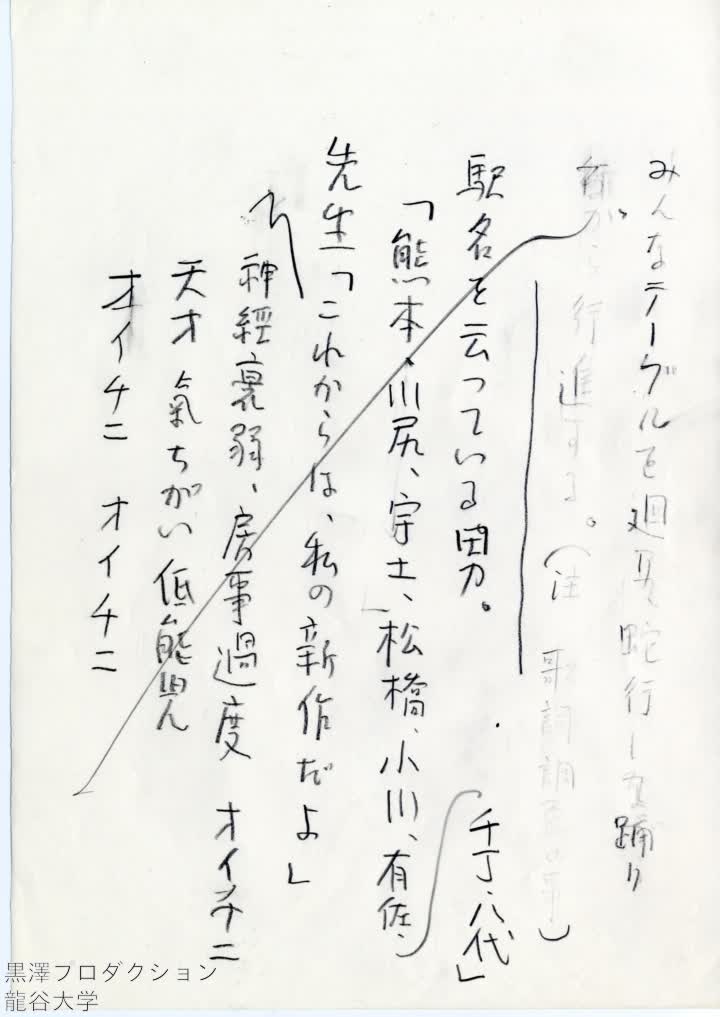 みんなテーブルを廻り、蛇行しな踊り
ながら行進する。（注 歌詞調査の事）
駅名を云っている男。
「熊本、川尻、宇土、松橋、小川、有佐、
千丁、八代」
先生「これからは、私の新作だよ」
神経衰弱、房事過度 オイチニ
天才 氣ちがい 低能児
オイチニ オイチニ
黒澤プロダクション
龍谷大学